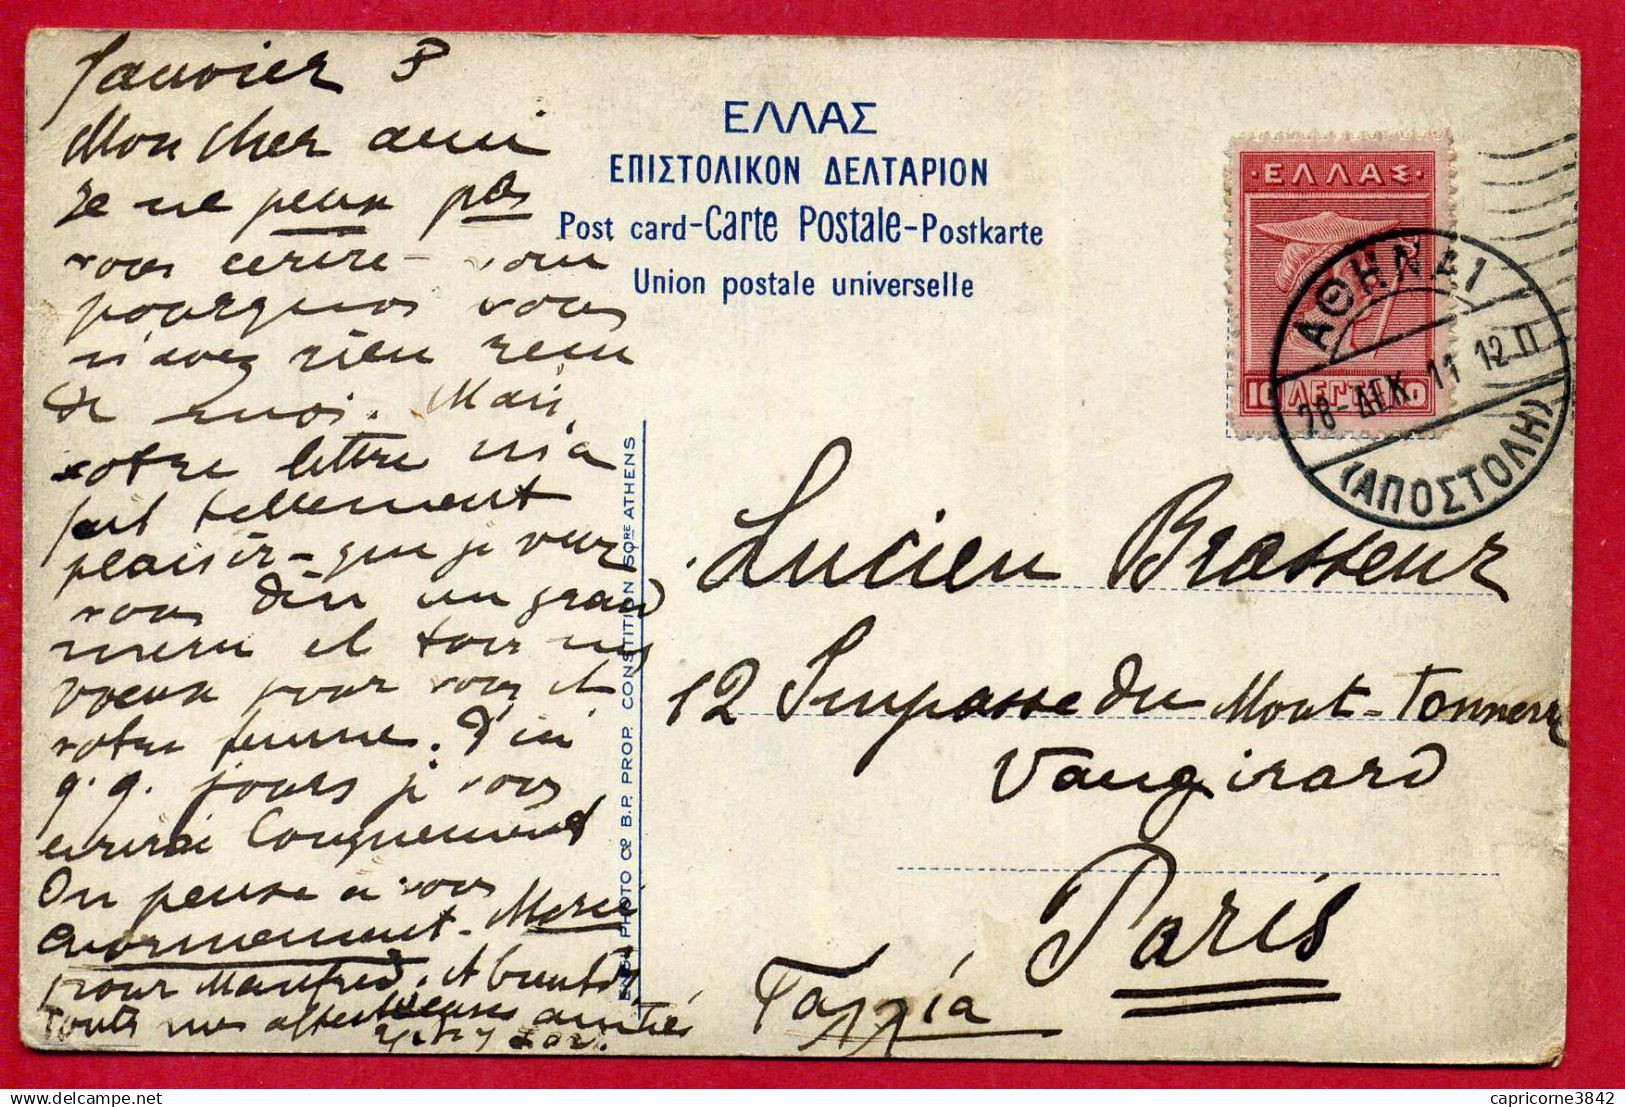 Janvier 8
Mon cher ami
Je ne peux pas
vous écrire - 
pourquoi vous
n'avez rien reçu
de moi. Mais
votre lettre m'a
fait tellement
plaisir - que je veux
vous dire un grand
merci et tous mes
voeux pour vous et
votre femme. D'ici
q.q. jours je vous
écrirai longuement
On pense à vous
énormement - Merci
pour Manfred. A bientôt
Toutes mes affectueuses amitiés
ΕΛΛΑΣ
ΕΠΙΣΤΟΛΙΚΟΝ ΔΕΛΤΑΡΙΟΝ
Post card-Carte Postale-Postkarte
Union postale universelle
PHOTO Cº B.P. PROP. CONSTITITION SQRE ATHENS
·ΕΛΛΑΣ·
10 ΛΕΠΤΑ 10
ΑΘΗΝΑΙ
28-ΔΕΚ 11 12 Π
(ΑΠΟΣΤΟΛΗ)
Lucien Brasseur
12 Impasse du Mont-Tonnerre
Vaugirard
Paris
Γαλλία
capricorne3842